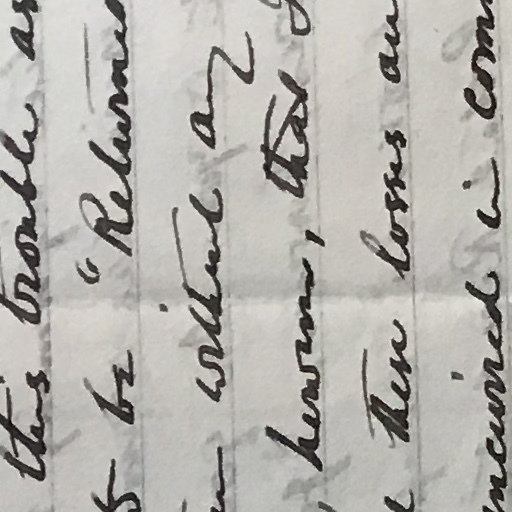 this trouble as
be "Returned
without any
, however, that I
these losses
incurred in com